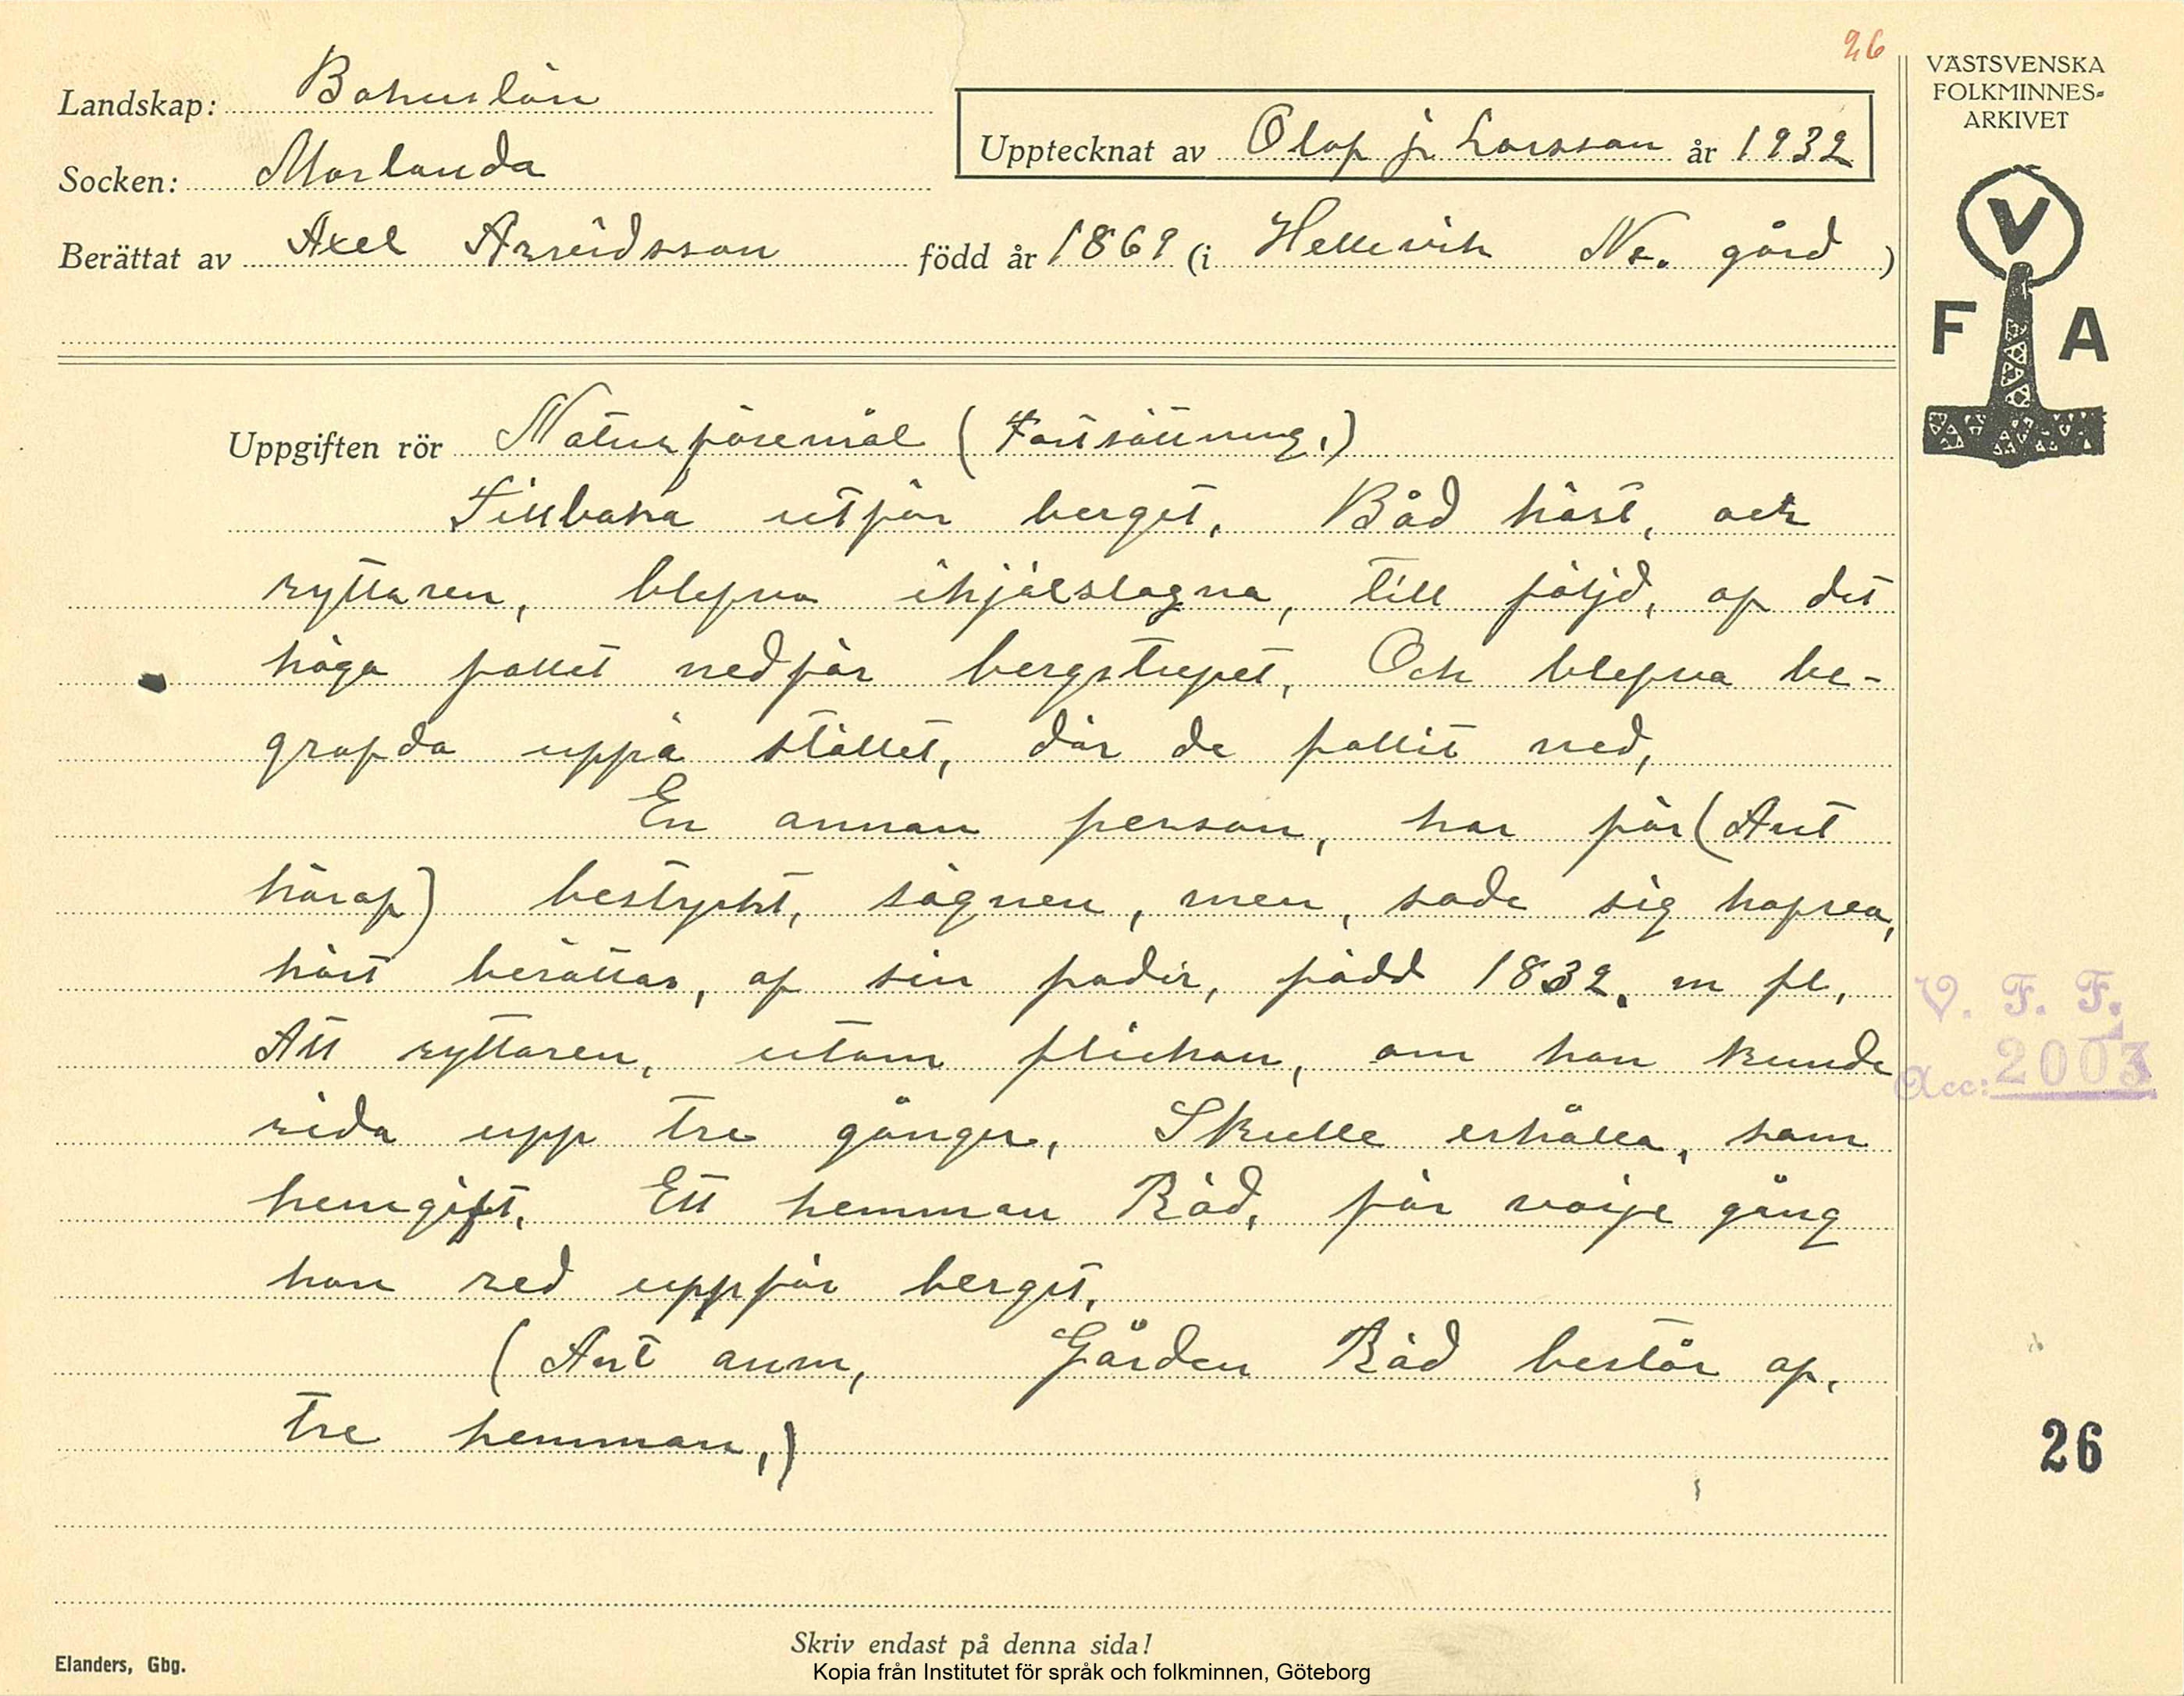 26
VÄSTSVENSKA
FOLKMINNES-
ARKIVET
Landskap: Bohuslän
Upptecknat av Olof j. Larsson år 1932
Socken: Morlanda
Berättat av Axel Arvidsson född år 1869 (i Hellevik Ne. gård )
V
F A
Uppgiften rör Naturföremål (Fortsättning,)
Tillbaka utför berget, Båd häst, och
ryttaren, blefvo ihjälslagna, till följd, af det
höga fallet nedför bergstupet, Och blefva be-
grafda uppå stället, där de fallit ned,
En annan person, har för (Ant
häraf) bestyrkt, sägnen, men, sade sig hafva,
hört berättas, af sin fader, född 1832. m fl,
Att ryttaren, utom flickan, om han kunde
rida upp tre gånger, Skulle erhålla, som
hemgift, Ett hemman Röd, för varje gång
han red uppför berget,
(Ant anm, Gården Röd består af,
tre hemman,)
V. F. F.
Acc: 2003
26
Skriv endast på denna sida!
Elanders, Gbg.
Kopia från Institutet för språk och folkminnen, Göteborg